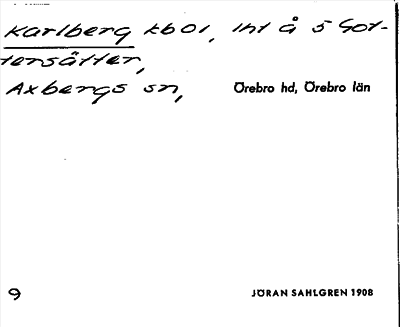 Karlberg tb 01, Int å 5 Got-
tersätter,
Axbergs sn, Örebro hd, Örebro län
9 JÖRAN SAHLGREN 1908